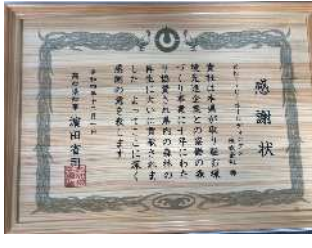 感謝状
株式会社 様
貴社は本県が取り組む環
境先進企業との協働の森
づくり事業に十年にわた
り協賛され県内の森林の
再生に大いに貢献されま
した よってここに深く
感謝の意を表します
令和四年十一月一日
高知県知事 濵田省司